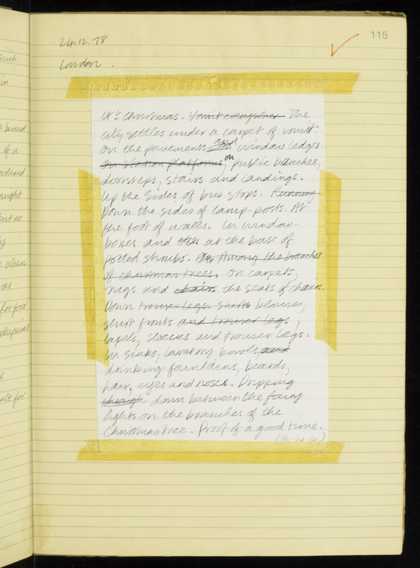 116
24.12.78
London.
It's Christmas. Vomit everywhere. The
city settles under a carpet of vomit.
On the pavements and window ledges
on station platforms, on public benches,
doorsteps, stairs and landings.
Up the sides of bus stops. Running
Down the sides of lamp posts. At
the foot of walls. In window-
boxes and at the base of
potted shrubs. Among the branches
of christmas trees, on carpets,
rugs and chairs the seats of chairs.
Down trouser legs blouses,
shirt fronts and trouser legs,
lapels, sleeves and trouser legs.
In sinks, lavatory bowls and
drinking fountains, beards,
hair, eyes and noses. Dripping
through down between the fairy
lights on the branches of the
Christmas tree. Proof of a good time.